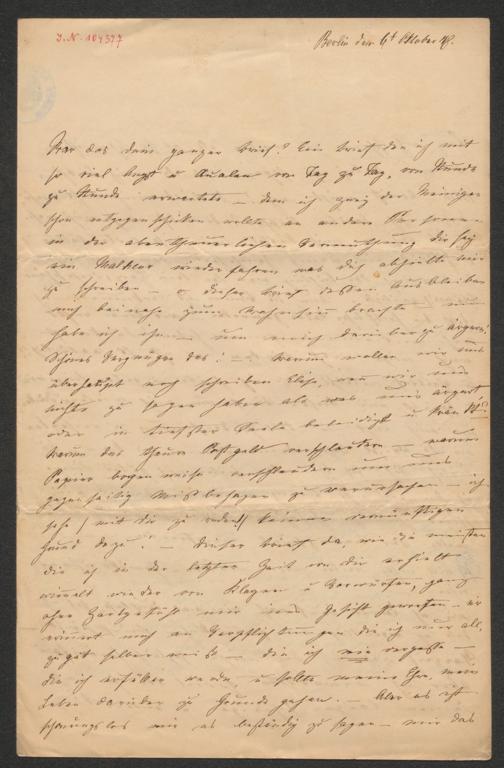 J. N. 104377
Berlin den 6t Oktober 48.
War das dein ganzer Brief? Ein Brief den ich mit
so viel Angst u Qualen von Tag zu Tag, von Stunde
zu Stunde erwartete — dem ich zwei der Meinigen
schon entgegenschicken wollte an andere Personen
in der abentheuerlichen Vermuthung dir sey
ein wiederfahren was dich abhielte mir
zu schreiben — o dieser Brief dessen Ausbleiben
mich beinahe zum Wahnsinn brachte — nun
habe ich ihn — um mich darüber zu ärgern!
Schönes Vergnügen das! — Warum wollen wir uns
überhaupt noch schreiben Elise, wenn wir uns
nichts zu sagen haben als was uns ärgert
oder in tiefster Seele beleidigt u kränkt?
Warum das theure Postgeld verschleudern — warum
Papier bogenweise verschleudern um uns
gegenseitig Mißbehagen zu verursachen — ich
sehe / mit dir zu reden / keinen vernünftigen
Grund dazu! — Dieser Brief da, wie die meisten
die ich in der letzten Zeit von dir erhielt
wimmelt wieder von Klagen u Vorwürfen, ganz
ohne Zartgefühl mir ins Gesicht geworfen — er
erinnert mich an Verpflichtungen die ich nur all,
zugut selber weiß — die ich nie vergesse —
die ich erfüllen werde, u sollte meine Ehre, mein
Leben darüber zu Grunde gehen. — Aber es ist
schonungslos mir es beständig zu sagen — mir das